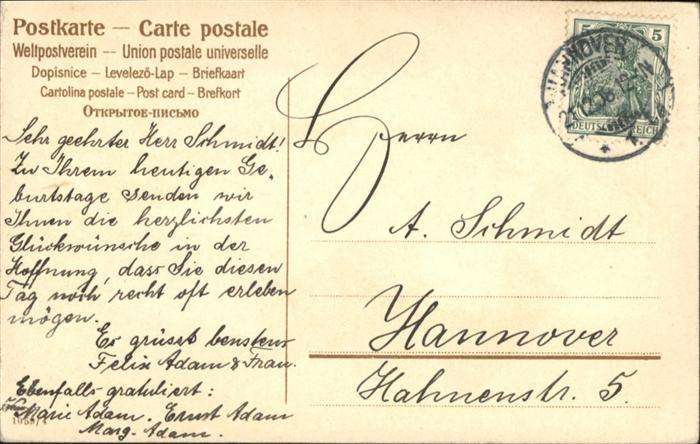 Postkarte — Carte postale
Weltpostverein — Union postale universelle
Dopisnice — Levelező-Lap — Briefkaart
Cartolina postale — Post card — Brefkort
Открытое письмо
Sehr geehrter Herr Schmidt!
Zu Ihrem heutigen Ge-
burtstage senden wir
Ihnen die herzlichsten
Glückwünsche in der
Hoffnung, dass Sie diesen
Tag noch recht oft erleben
mögen.
Es grüsst bestens
Felix Adam & Frau.
Ebenfalls gratuliert:
Marie Adam. Ernst Adam
Marg. Adam.
Herrn
A. Schmidt
Hannover
Hahnenstr. 5.
5 5
HANNOVER
DEUTSCHES REICH